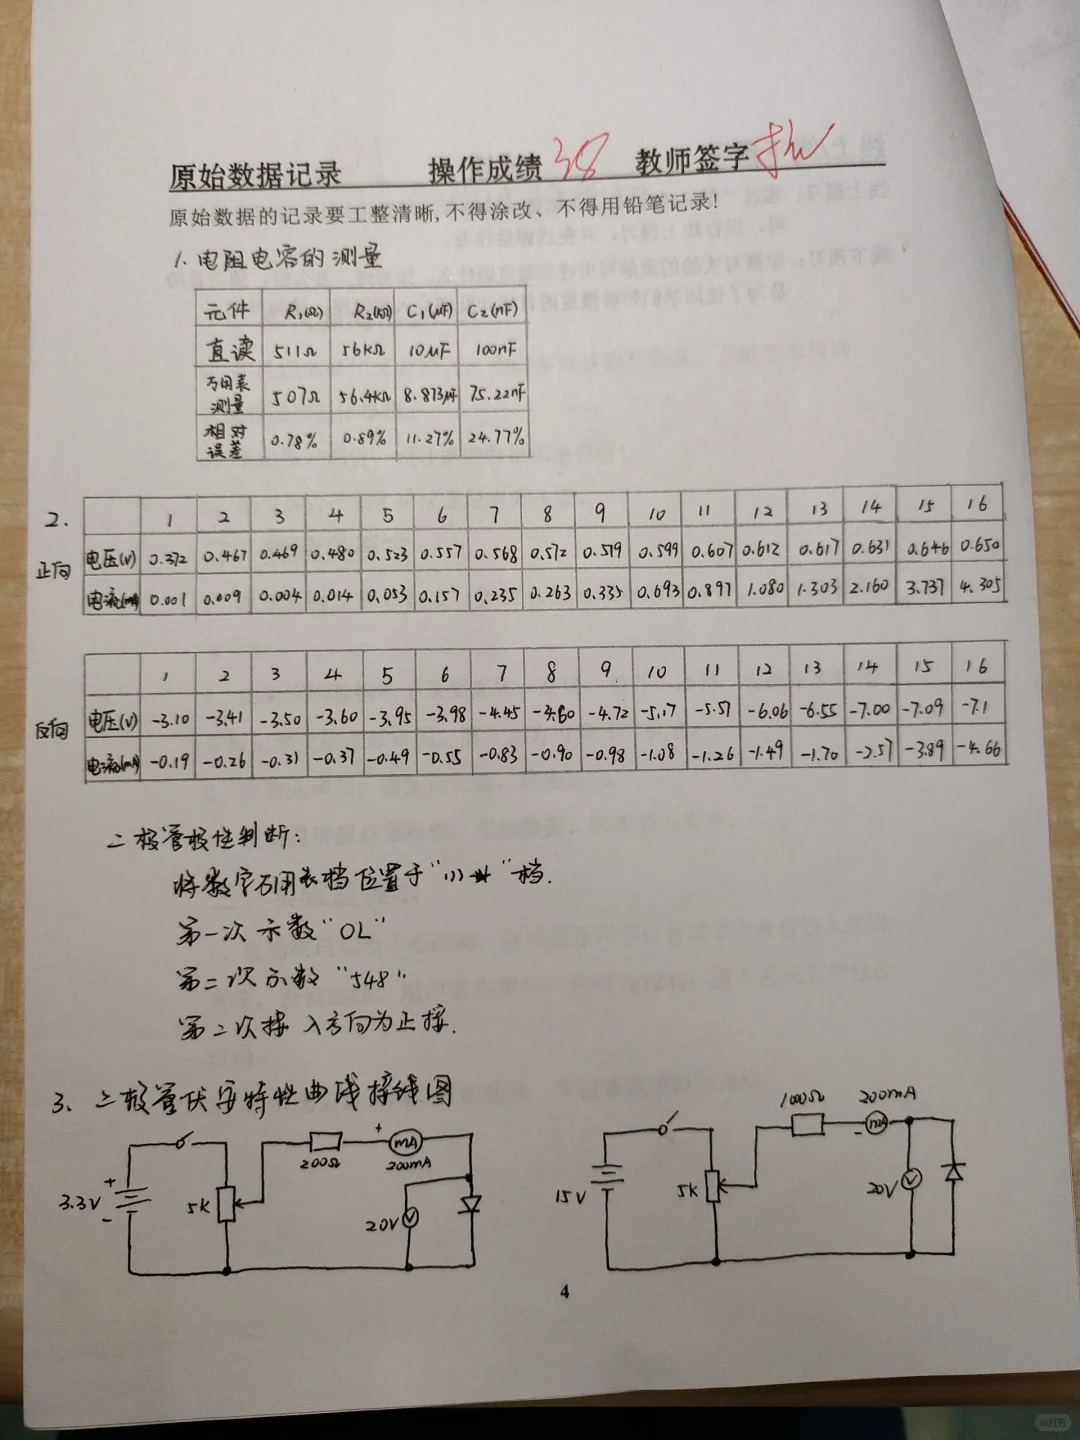 原始数据记录 操作成绩 38 教师签字
原始数据的记录要工整清晰,不得涂改、不得用铅笔记录!
1. 电阻电容的测量
元件 R₁(Ω) R₂(KΩ) C₁(μF) C₂(nF)
直读 511Ω 56KΩ 10μF 100nF
万用表测量 507Ω 56.4KΩ 8.873μF 75.22nF
相对误差 0.78% 0.89% 11.27% 24.77%
2.
正向
1 2 3 4 5 6 7 8 9 10 11 12 13 14 15 16
电压(V) 0.372 0.467 0.469 0.480 0.523 0.557 0.568 0.572 0.579 0.599 0.607 0.612 0.617 0.631 0.646 0.650
电流(mA) 0.001 0.009 0.004 0.014 0.053 0.157 0.235 0.263 0.335 0.693 0.897 1.080 1.303 2.160 3.737 4.305
反向
1 2 3 4 5 6 7 8 9 10 11 12 13 14 15 16
电压(V) -3.10 -3.41 -3.50 -3.60 -3.95 -3.98 -4.45 -4.60 -4.72 -5.17 -5.57 -6.06 -6.55 -7.00 -7.09 -7.1
电流(mA) -0.19 -0.26 -0.31 -0.37 -0.49 -0.55 -0.83 -0.90 -0.98 -1.08 -1.26 -1.49 -1.70 -2.57 -3.89 -4.66
二极管极性判断:
将数字万用表档位置于“ ”档.
第一次示数“OL”
第二次示数“548”
第二次接入方向为正接.
3. 二极管伏安特性曲线接线图
+ 3.3V - 5K 200Ω + mA 200mA 20V V
15V 5K 1000Ω - mA 200mA 20V V
4
小红书